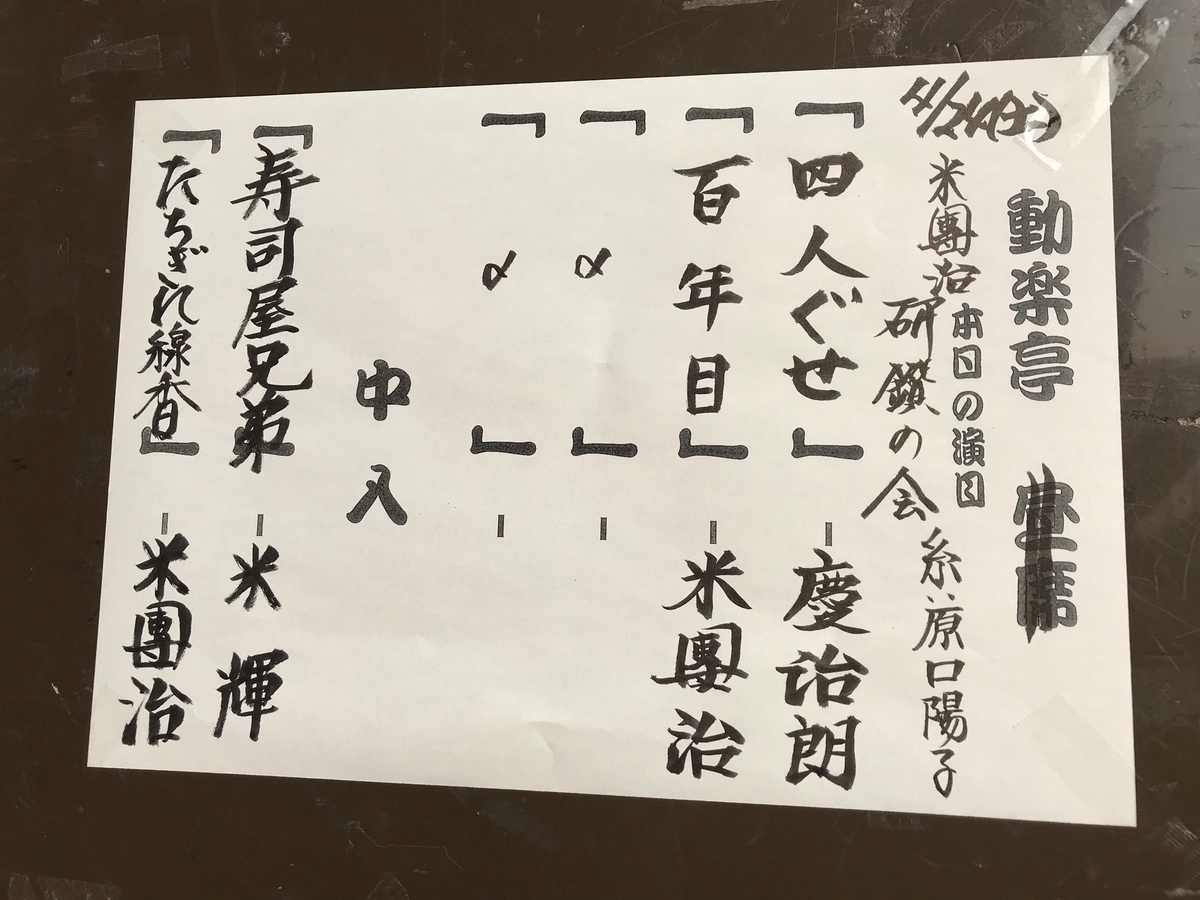 動楽亭 昼席
本日の演目
4/24(土)
米團治
研鑽の会
糸:原口陽子
「四人ぐせ」-慶治朗
「百年目」-米團治
「〆」-
「〆」-
中入
「寿司屋兄弟」-米輝
「たちぎれ線香」-米團治